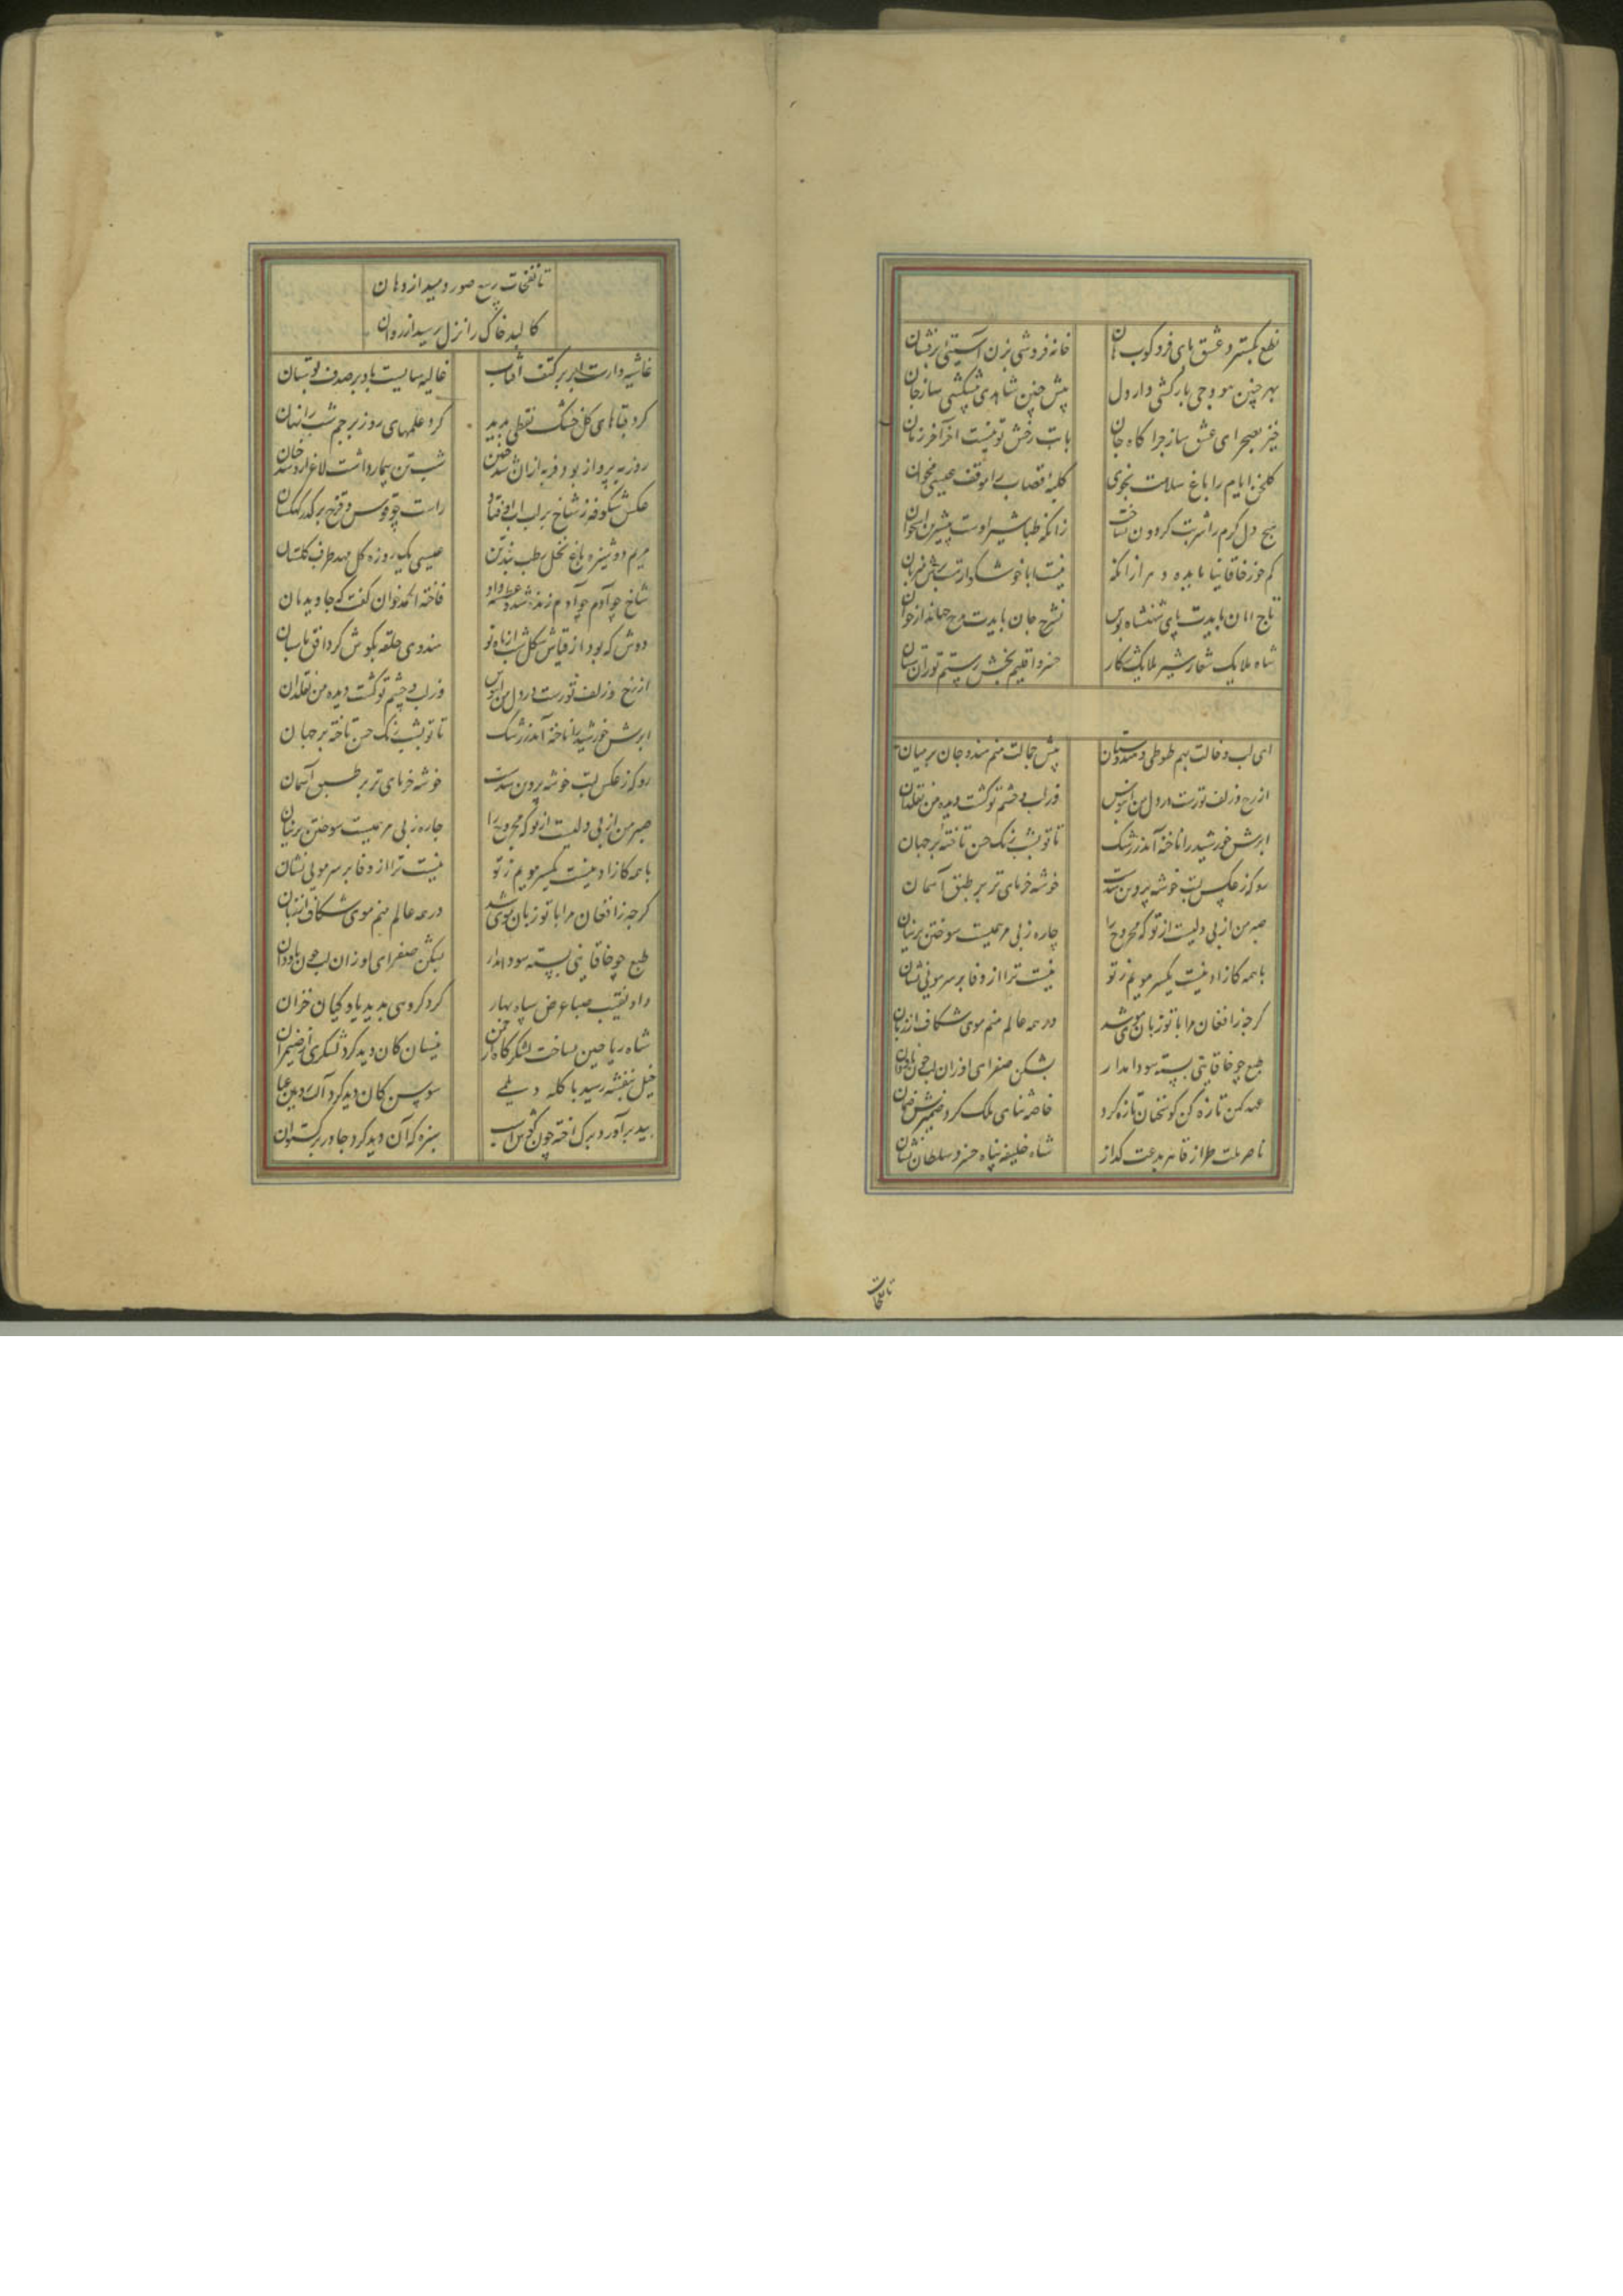 نطع بگستر و عشق پای فرو کوب هان خانه فروشی بزن آستینی برفشان
بهر چنین هودجی بارکشی دار دل پیش چنین شاهدی پیشکشی ساز جان
خیز بصحرای عشق ساز چراگاه جان بابت رخش تو نیست آخر آخر زمان
گلخن ایام را باغ سلامت مخوی کلبه قصاب را موقف عیسی مخوان
هیچ دل گرم را شربت گردون نساخت زانکه طباشیر اوست بیشترین استخوان
کم خور خاقانیا مایده دهر از آنکه نیست ابا خوشگوار تب‌رش میزبان
تاج امان بایدت پای شهنشاه بوس نشرح جان بایدت مدح جهاندار خوان
شاه ملایک شعار شیر ملایک شکار خسرو اقلیم بخش رستم توران ستان
ای لب و خالت بهم طوطی و هندوستان پیش جمالت منم هندو جان بر میان
از رخ و زلف تو رست در دل من آبنوس وز لب و چشم تو گشت دیده من نقلدان
ابرش خورشید را ناخنه آمد ز رشک تا تو بشبرنگ حسن تاخته بر جهان
رو که ز عکس لبت خوشه پروین شدست خوشه خرمای تر بر طبق آسمان
صبر من از بی دلیست از تو که مجروح را چاره ز بی مرهمیست سوختن پرنیان
با همه کازاد نیست یکسر مویم ز تو نیست ترا از وفا بر سر مویی نشان
گرچه ز افغان مرا با تو زبان موی شد در همه عالم منم موی شکاف از زبان
طبع چو خاقانیی بسته سودا مدار بشکن صفرای او زان لب چون ناردان
عهد کهن تازه کن کو سخنان تازه کرد خاصه ثنای ملک کرد ضمیرش ضمان
ناصر ملت طراز قاهر بدعت گداز شاه خلیفه پناه خسرو سلطان نشان
تا نفحات
تا نفحات ربیع صور دمید از دهان
کالبد خاک را نزل رسید از روان
غاشیه دارست ابر بر کتف آفتاب غالیه سایست باد بر صدف بوستان
کرد قباهای گل خشتک نفطی پدید کرد علمهای روز پرچم شب را نهان
روز به پرواز بود فربه از آن شد چنین شب تن بیمار داشت لاغر از آن شد چنان
عکس شکوفه ز شاخ بر لب آب اوفتاد راست چو قوس و قزح برگذر کهکشان
مریم دوشیزه باغ نخل رطب بید بن عیسی یک روزه گل مهد طرب گلستان
شاخ چو آدم چو آدم زنده شد و عطسه داد فاخته الحمد خوان گفت که جاوید مان
دوش که بود از قیاس شکل شب از ماه نو هندوی حلقه بگوش گرد افق پاسبان
از رخ و زلف تو رست در دل من آبنوس وز لب و چشم تو گشت دیده من نقلدان
ابرش خورشید را ناخنه آمد ز رشک تا تو بشبرنگ حسن تاخته بر جهان
رو که ز عکس لبت خوشه پروین شدست خوشه خرمای تر بر طبق آسمان
صبر من از بی دلیست از تو که مجروح را چاره ز بی مرهمیست سوختن پرنیان
با همه کازاد نیست یکسر مویم ز تو نیست ترا از وفا بر سر مویی نشان
گرچه ز افغان مرا با تو زبان موی شد در همه عالم منم موی شکاف از زبان
طبع چو خاقانیی بسته سودا مدار بشکن صفرای او زان لب چون ناردان
داد نقیب صبا عرض سپاه بهار کز دو گروهی بدید یاوگیان خزان
شاه ریاحین بساخت لشکرگاه از چمن نیسان کان دید کرد لشکری از ضیمران
خیل بنفشه رسید با کله دیلمی سوسن کان دید کرد آلت زوبین عیان
بید برآورد برگ آخته چون گوش اسب سبزه که آن دید کرد چادر برگستوان